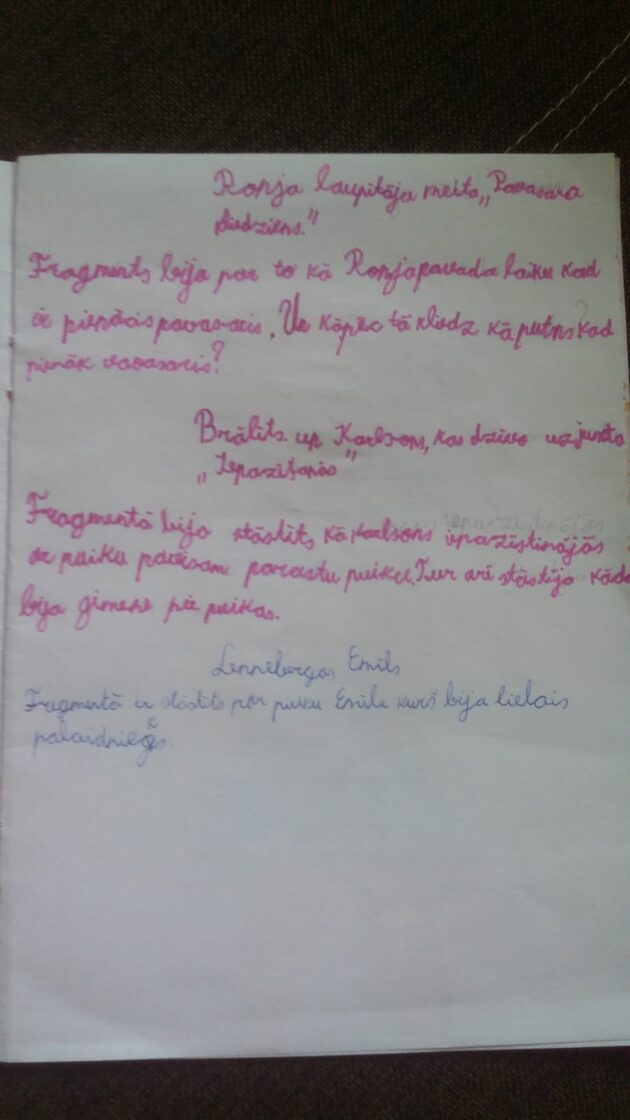 Ronja laupītāja meita „Pavasara
kliedziens."
Fragments bija par to kā Ronja pavada laiku kad
ir pienācis pavasaris. Un kāpēc tā kliedz kā putns kad
pienāk vavasaris?
Brālītis un Karlsons, kas dzīvo uz jumta
„Iepazīšanās"
Fragmentā bija stāstīts kā Karlsons iepazīstinājās
ar puiku pavisam parastu puiku. Tur arī stāstīja kāda
bija ģimene pie puikas.
Lennebergas Emīls
Fragmentā ir stāstīts par puiku Emīlu kurš bija lielais
palaidnieks.